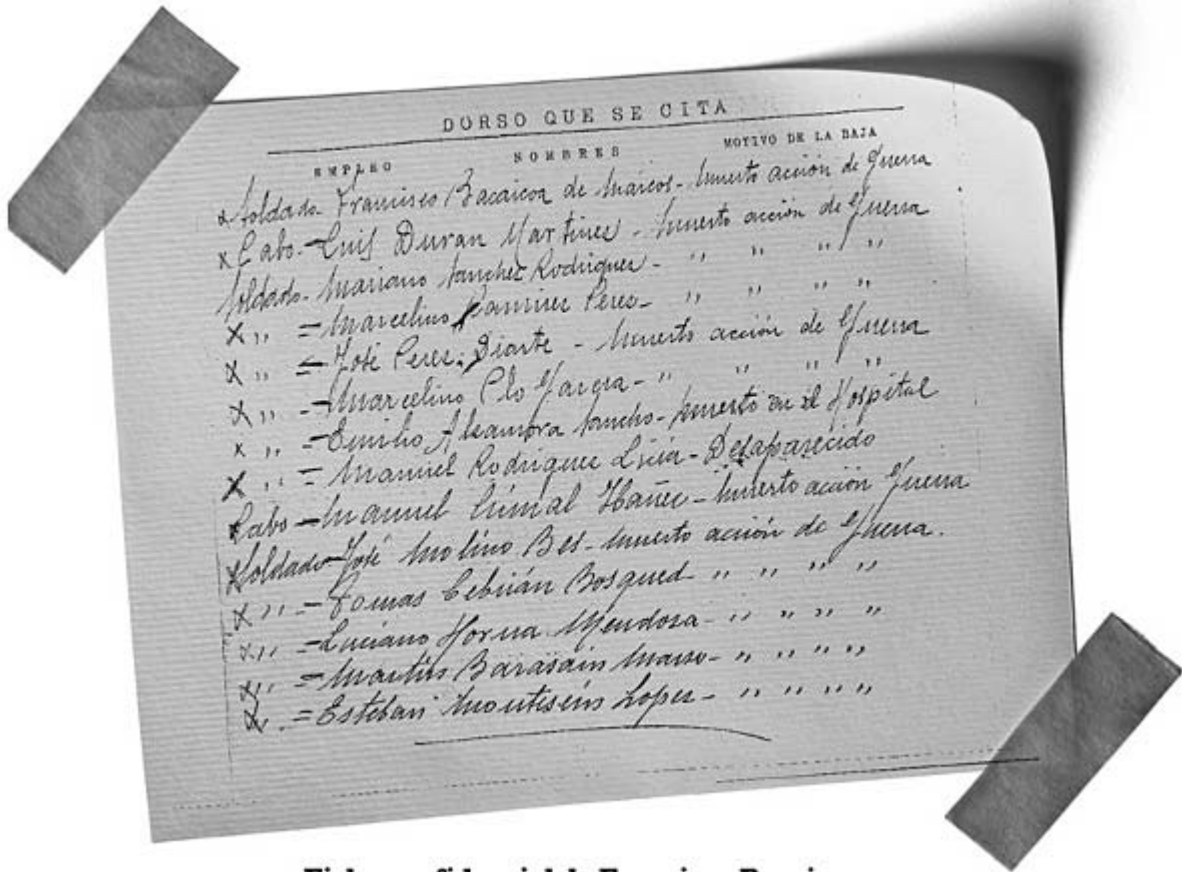 DORSO QUE SE CITA
EMPLEO NOMBRES MOTIVO DE LA BAJA
x Soldado - Francisco Bacaicoa de Marcos - Muerto acción de Guerra
x Cabo - Luis Duran Martines - Muerto acción de Guerra
Soldado - Mariano Sanchez Rodriguez - " " " "
x " = Marcelino Ramirez Peres - " " " "
x " = José Peres Diarte - Muerto acción de Guerra
x " - Marcelino Clo Garcia - " " " "
x " = Emilio Alsamora Sancho - Muerto en el Hospital
x " = Manuel Rodriguez Licia - Desaparecido
Cabo - Manuel Ibañez - Muerto acción Guerra
x Soldado - José Molino Bes - Muerto acción de Guerra.
x " - Tomas Cebrián Bosqued " " " "
x " = Luciano Horna Mendoza - " " " "
x " = Martin Barasain - " " " "
x . = Esteban Lopez - " " " "